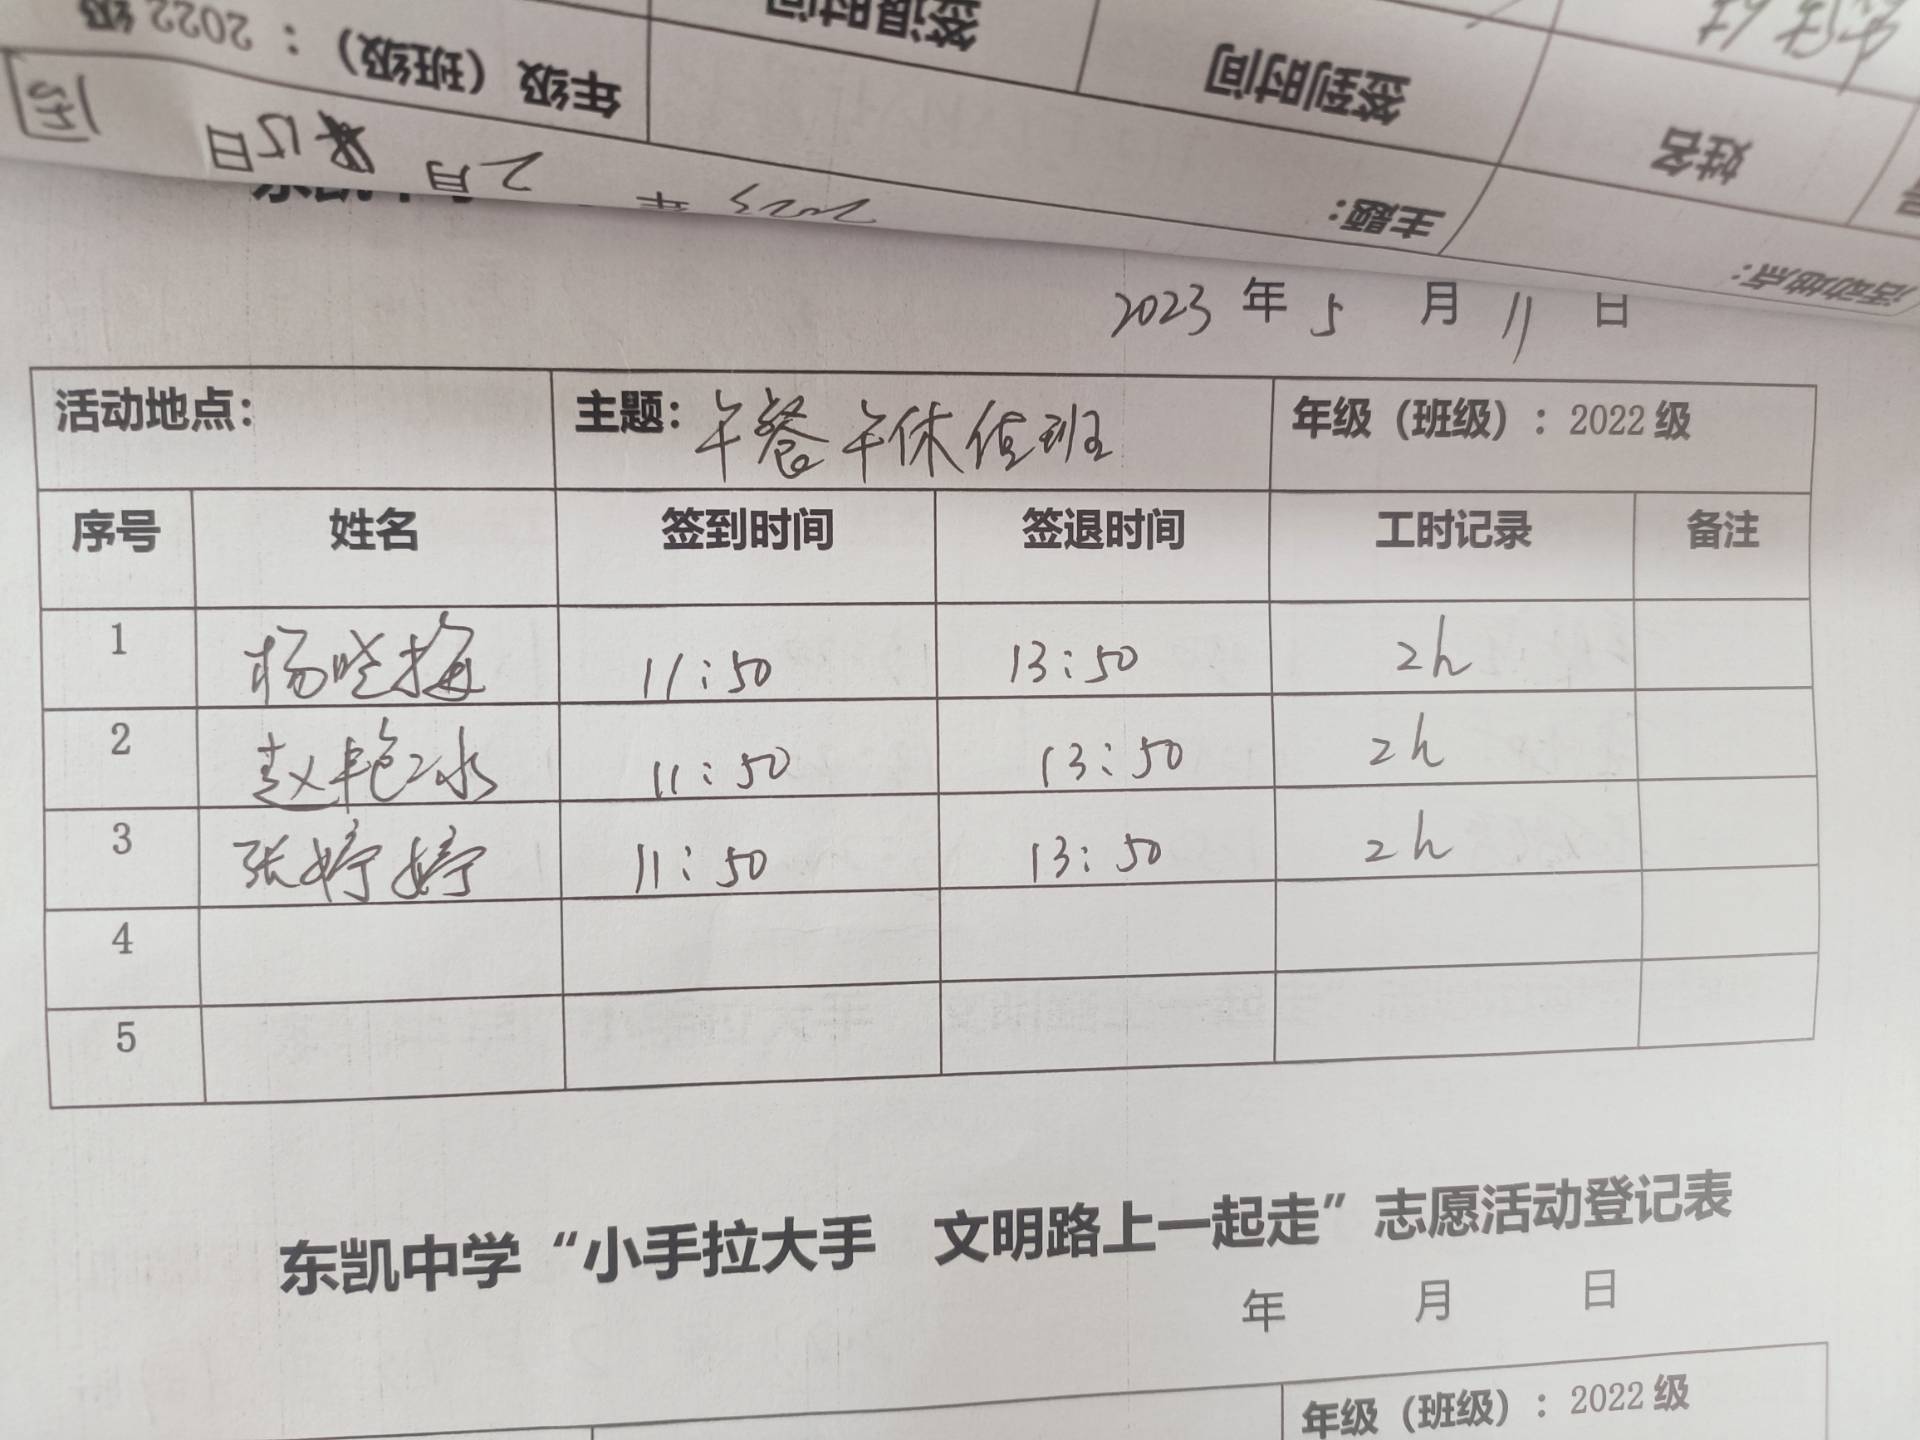 签退时间
年级（班级）：2022级
签到时间
姓名
主题：
2023年2月15日
活动地点：
2023年5月11日
活动地点： 主题：午餐午休值班 年级（班级）：2022级
序号 姓名 签到时间 签退时间 工时记录 备注
1 杨晓梅 11:50 13:50 2h
2 赵艳冰 11:50 13:50 2h
3 张婷婷 11:50 13:50 2h
4
5
东凯中学“小手拉大手 文明路上一起走”志愿活动登记表
年 月 日
年级（班级）：2022级